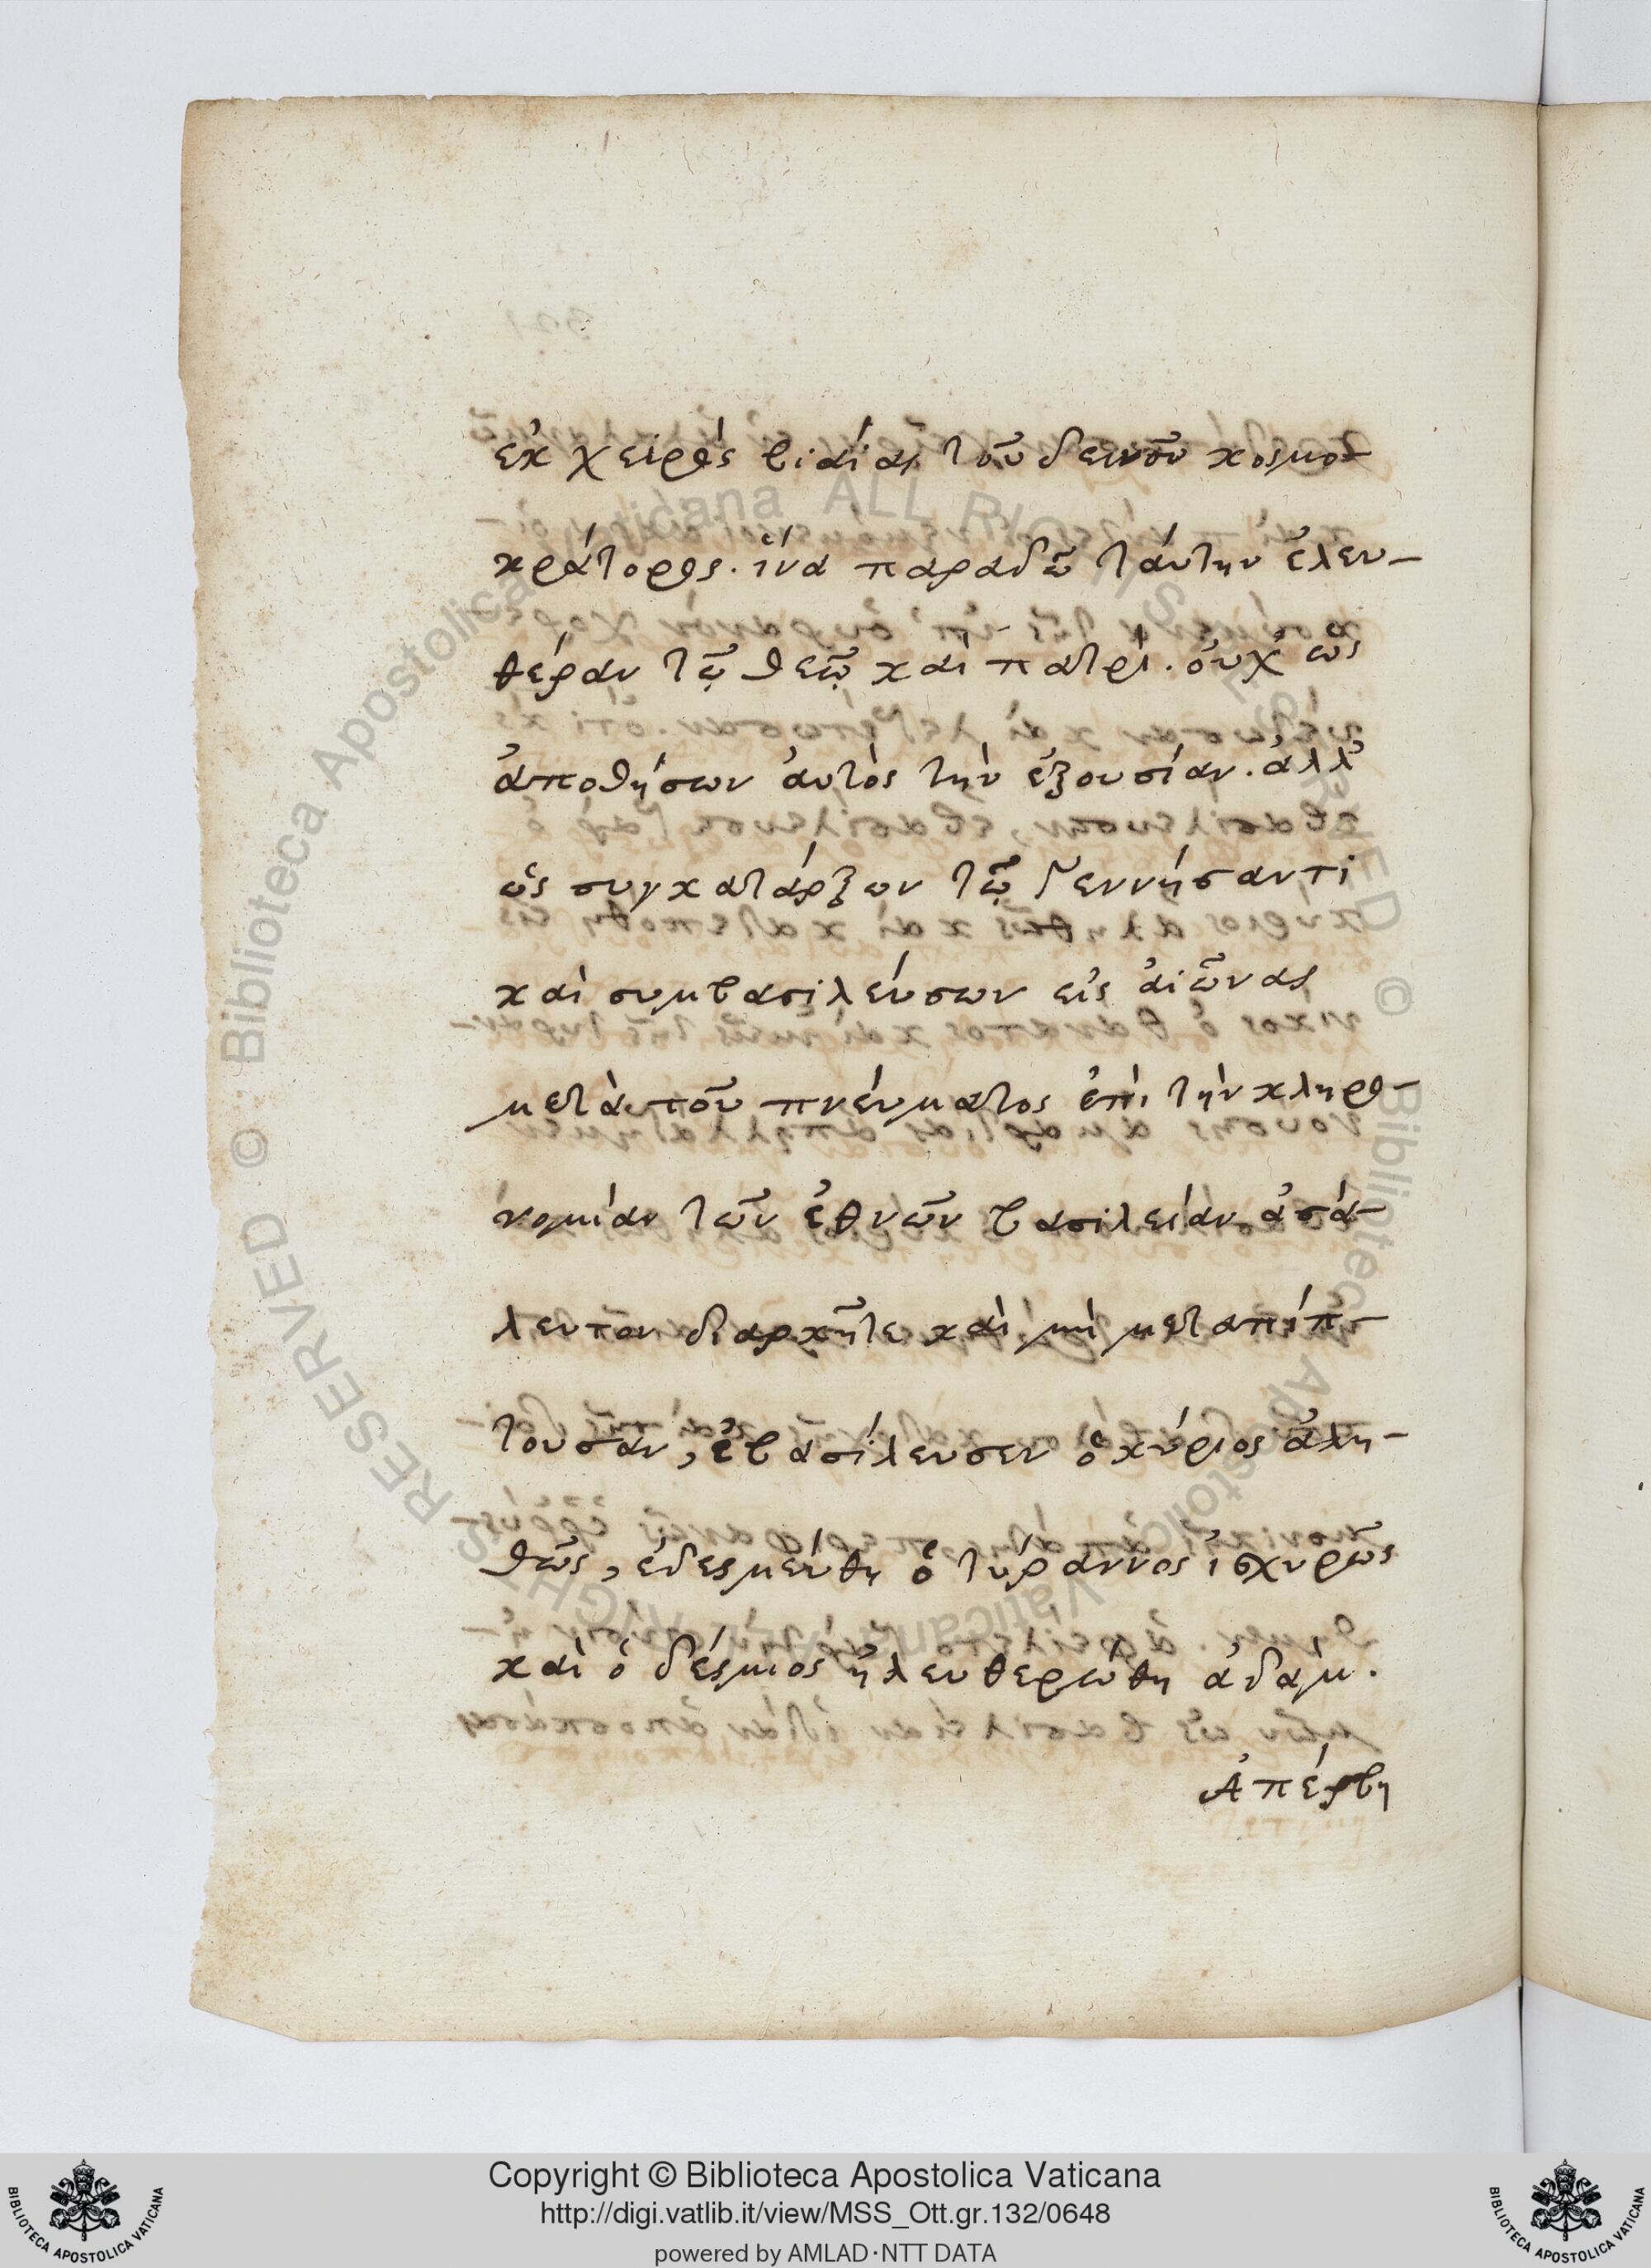 ἐκ χειρὸς βιαίας τοῦ δεινοῦ κοσμο-
κράτορος. ἵνα παραδῶ ταύτην ἐλευ-
θέραν τῷ θεῷ καὶ πατρὶ. οὐχ ὡς
ἀποθήσων αὐτὸς τὴν ἐξουσίαν. ἀλλ'
ὡς συγκατάρξων τῷ γεννήσαντι
καὶ συμβασιλεύσων εἰς αἰῶνας
μετὰ τοῦ πνεύματος ἐπὶ τὴν κληρο-
νομίαν τῶν ἐθνῶν βασιλείαν ἀσά-
λευτον διαρκῆτε καὶ μὴ μεταπίπ-
τουσαν, ἐβασίλευσεν ὁ κύριος ἀλη-
θῶς, ἐδεσμεύθη ὁ τύραννος ἰσχυρῶς
καὶ ὁ δέσμιος ἠλευθερώθη ἀδάμ.
Ἀπέρβη
Copyright © Biblioteca Apostolica Vaticana
http://digi.vatlib.it/view/MSS_Ott.gr.132/0648
powered by AMLAD·NTT DATA
BIBLIOTECA APOSTOLICA VATICANA
BIBLIOTECA APOSTOLICA VATICANA